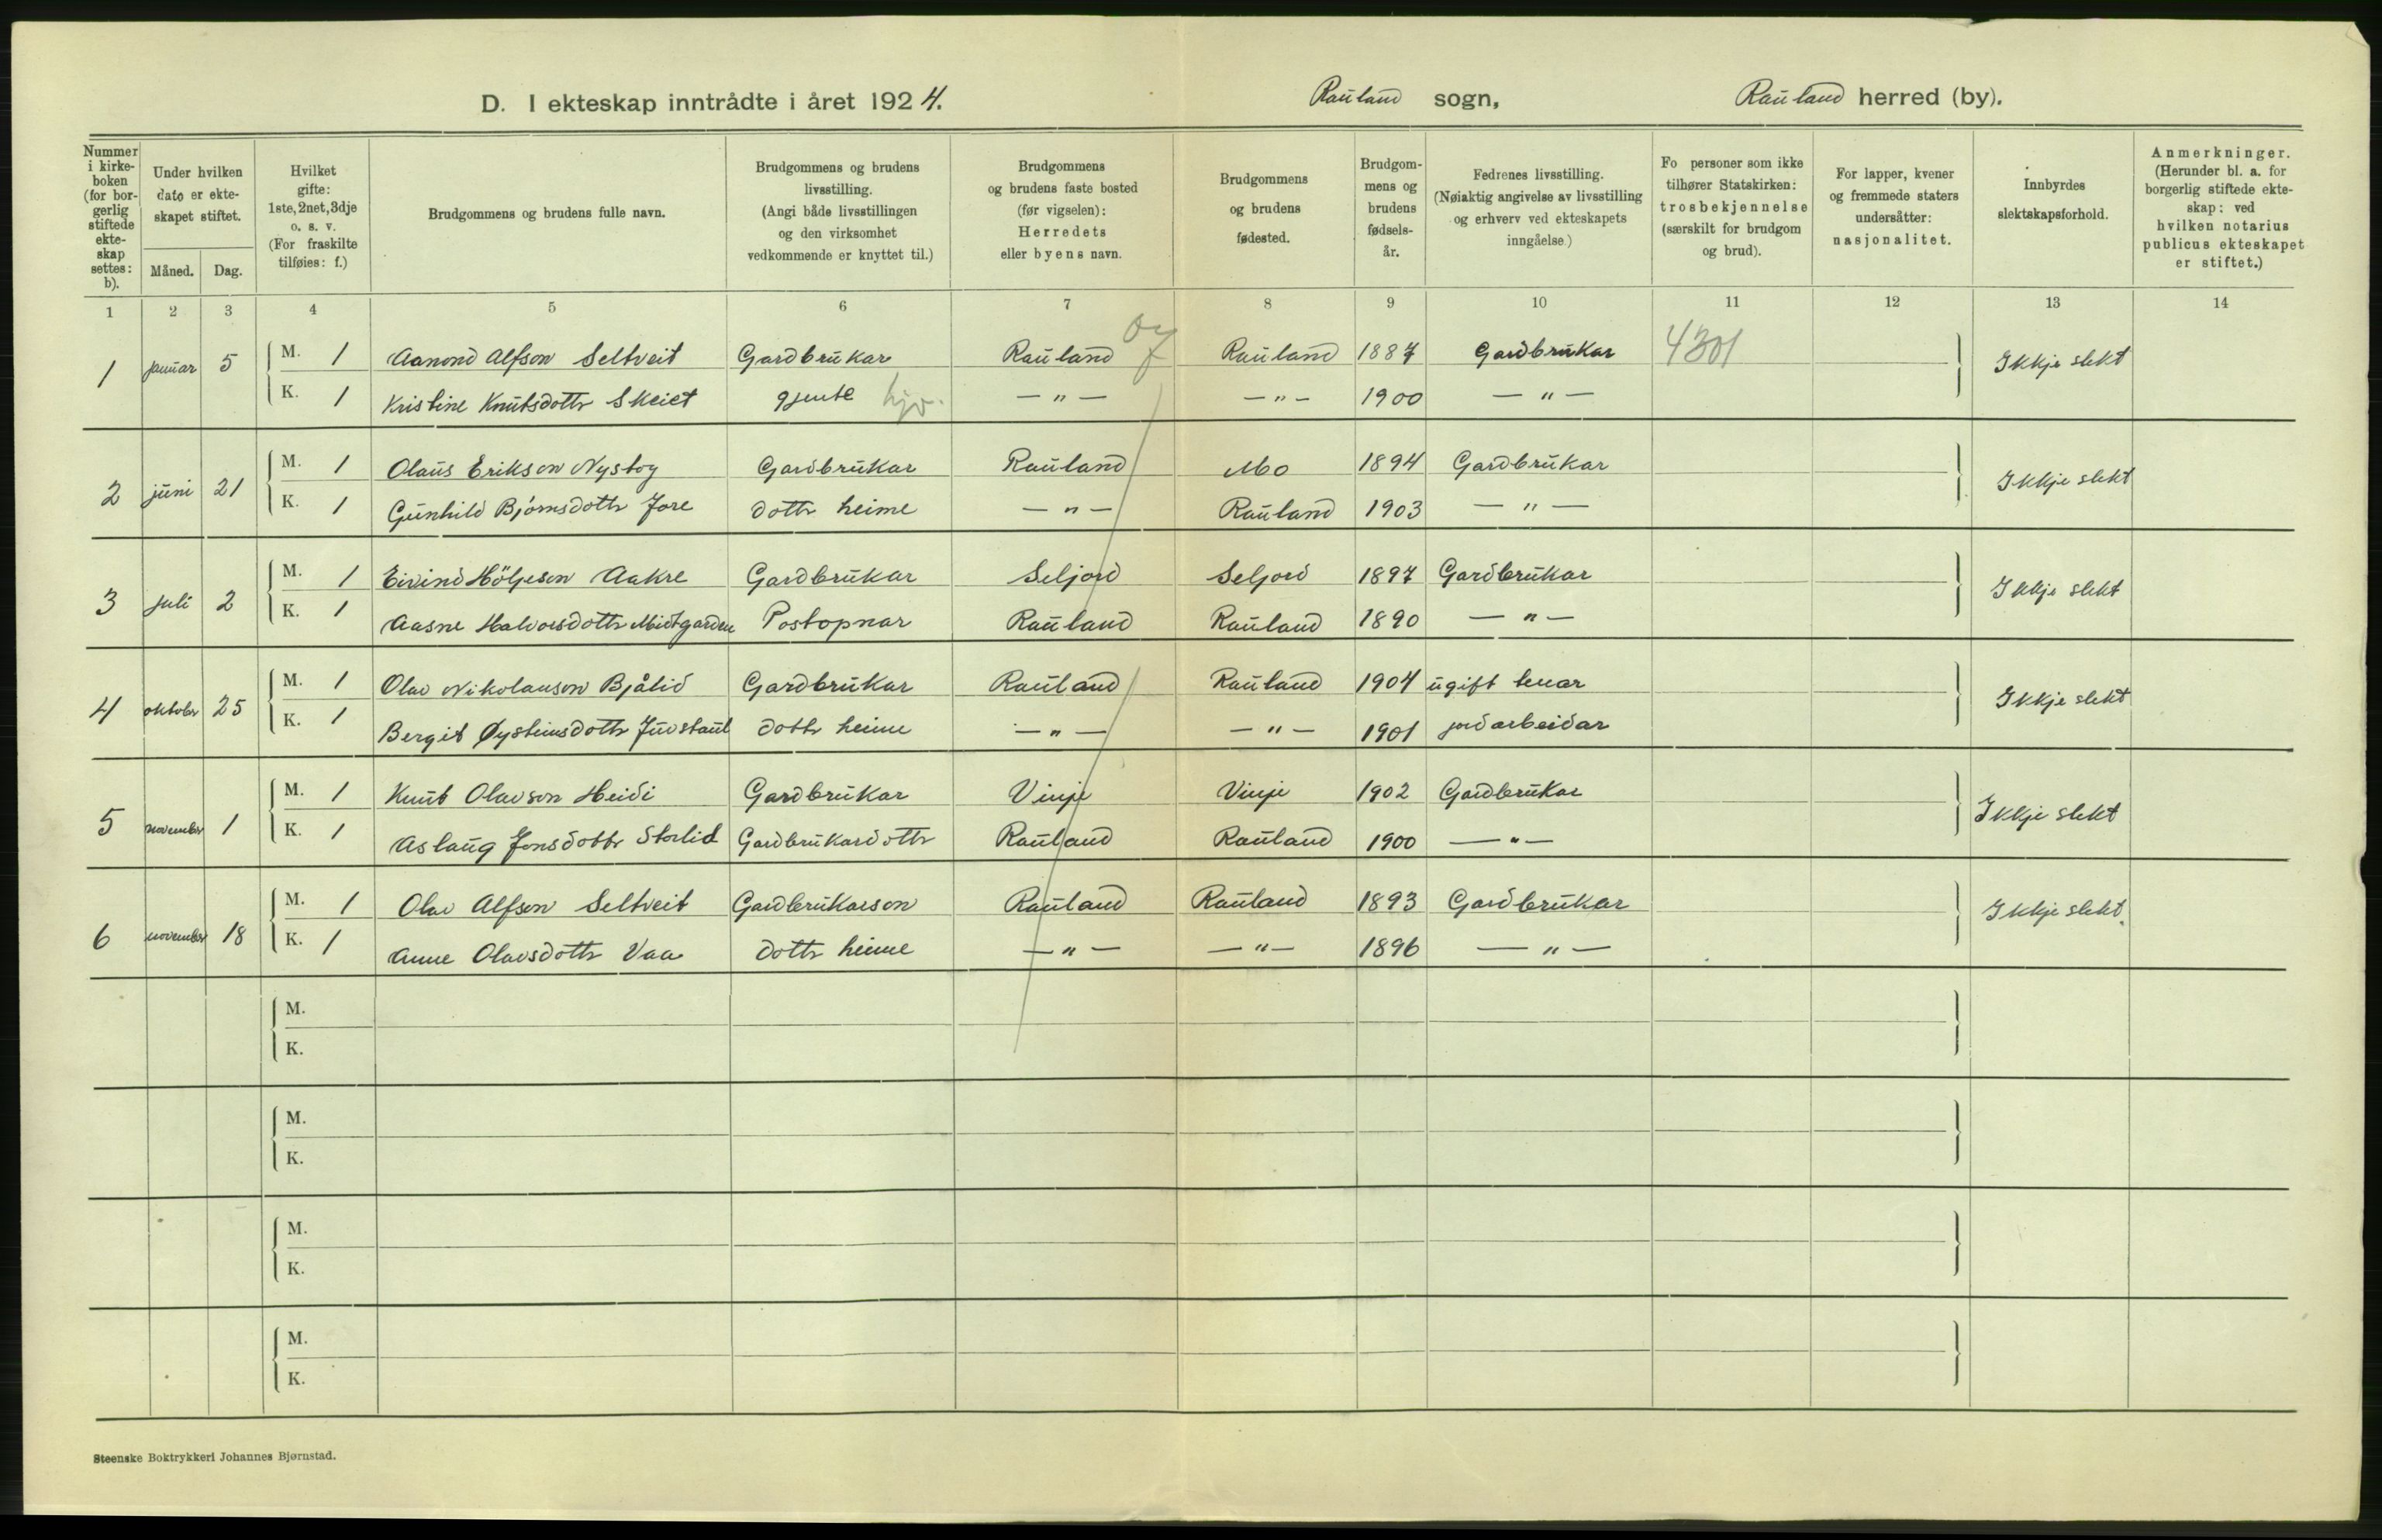 D. I ekteskap inntrådte i året 1924. Rauland sogn, Rauland herred (by).
Nummer i kirke- boken (for bor- gerlig stiftede ekte- skap settes: b).
Under hvilken dato er ekte- skapet stiftet.
Måned. Dag.
Hvilket gifte: 1ste, 2net, 3dje o. s. v. (For fraskilte tilføies: f.)
Brudgommens og brudens fulle navn.
Brudgommens og brudens livsstilling. (Angi både livsstillingen og den virksomhet vedkommende er knyttet til.)
Brudgommens og brudens faste bosted (før vigselen): Herredets eller byens navn.
Brudgommens og brudens fødested.
Brudgom- mens og brudens fødsels- år.
Fedrenes livsstilling. (Nøiaktig angivelse av livsstilling og erhverv ved ekteskapets inngåelse.)
Fo personer som ikke tilhører Statskirken: trosbekjennelse (særskilt for brudgom og brud).
For lapper, kvener og fremmede staters undersåtter: nasjonalitet.
Innbyrdes slektskapsforhold.
Anmerkninger. (Herunder bl. a. for borgerlig stiftede ekte- skap: ved hvilken notarius publicus ekteskapet er stiftet.)
1 2 3 4 5 6 7 8 9 10 11 12 13 14
1 januar 5 M. 1 Aanond Alfson Seltveit Gardbrukar Rauland Rauland 1887 Gardbrukar 4301 Ikkje slekt
K. 1 Kristine Knutsdottr Skeiet gjente hjv. — " — — " — 1900 — " —
2 juni 21 M. 1 Olaus Erikson Nystog Gardbrukar Rauland Mo 1894 Gardbrukar Ikkje slekt
K. 1 Gunhild Bjørnsdottr Jore dottr heime — " — Rauland 1903 — " —
3 juli 2 M. 1 Eivind Höljeson Aakre Gardbrukar Seljord Seljord 1897 Gardbrukar Ikkje slekt
K. 1 Aasne Halvorsdottr Midtgarden Postopnar Rauland Rauland 1890 — " —
4 oktober 25 M. 1 Olav Nikolauson Bjålid Gardbrukar Rauland Rauland 1904 ugift Ikkje slekt
K. 1 Bergit Øysteinsdottr Juvstaul dottr heime — " — — " — 1901 jordarbeidar
5 november 1 M. 1 Knut Olavson Heidi Gardbrukar Vinje Vinje 1902 Gardbrukar Ikkje slekt
K. 1 Aslaug Jonsdottr Storlid Gardbrukardottr Rauland Rauland 1900 — " —
6 november 18 M. 1 Olav Alfson Seltveit Gardbrukarson Rauland Rauland 1893 Gardbrukar Ikkje slekt.
K. 1 Anne Olavsdottr Vaa dottr heime — " — — " — 1896 — " —
M.
K.
M.
K.
M.
K.
M.
K.
Steenske Boktrykkeri Johannes Bjørnstad.